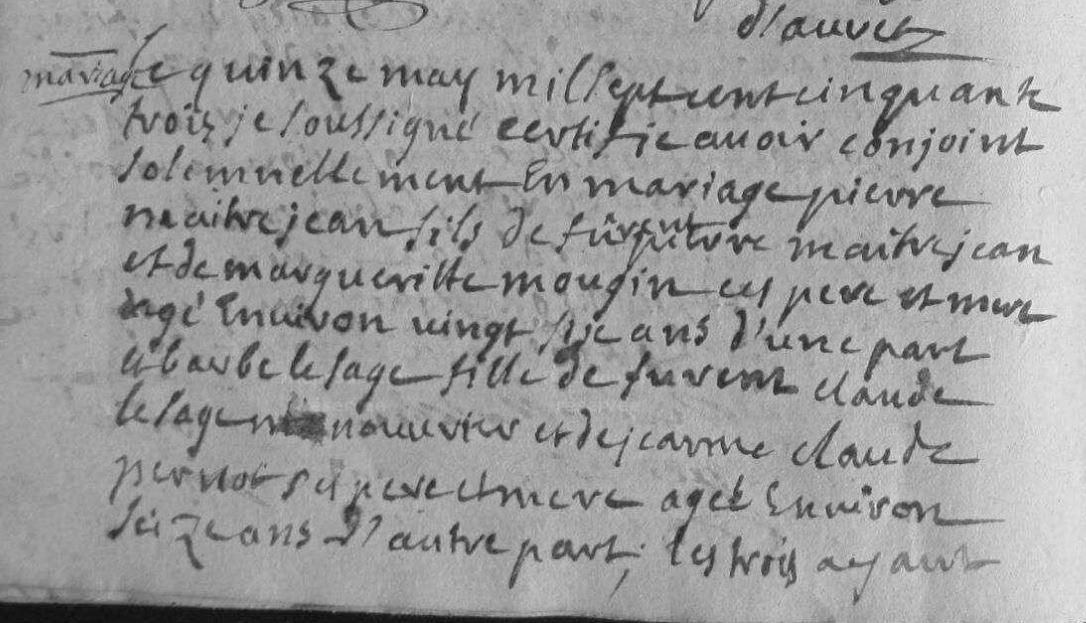 d'auvet
mariage
Le quinze may mil sept cent cinquante
trois je soussigné certifie avoir conjoint
solemnellement En mariage pierre
maitrejean fils de fûrent pierre maîtrejean
et de margueritte mougin ces pere et mere
agé Environ vingt six ans d'une part
et barbe lesage fille de furent claude
lesage manouvrier et de jeanne claude
pernot ses pere et mere ageé Environ
seize ans d'autre part; les trois ayant